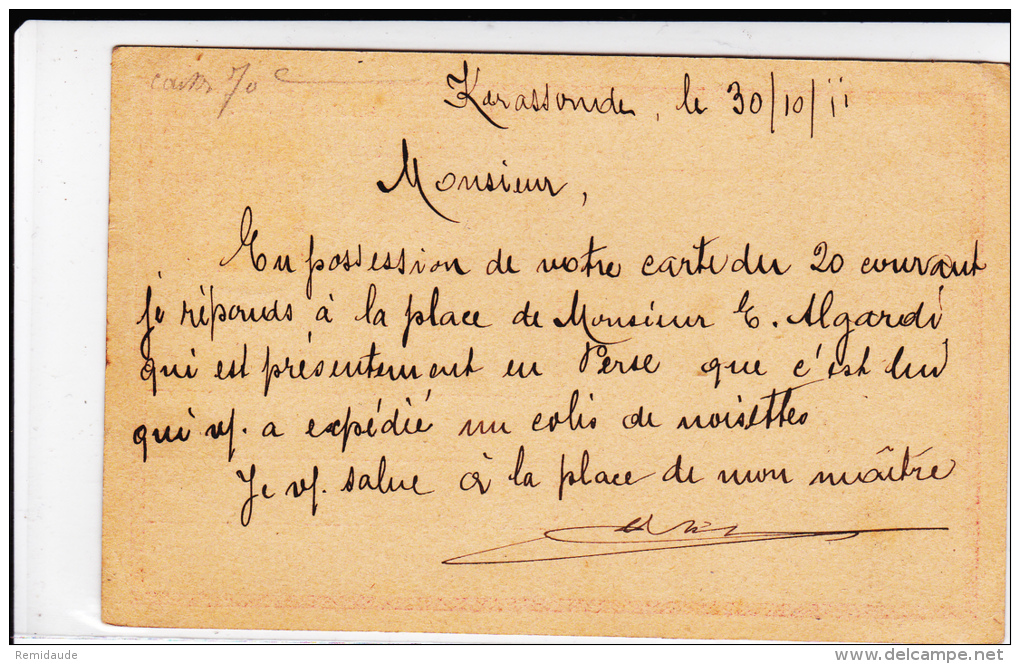 Kerassonde, le 30/10/11
Monsieur,
En possession de votre carte du 20 courant
je réponds à la place de Monsieur E. Algardi
qui est présentement en Perse que c'est lui
qui vs. a expédié un colis de noisettes
Je vs. salue à la place de mon maître
Remidaude
delcampe.net